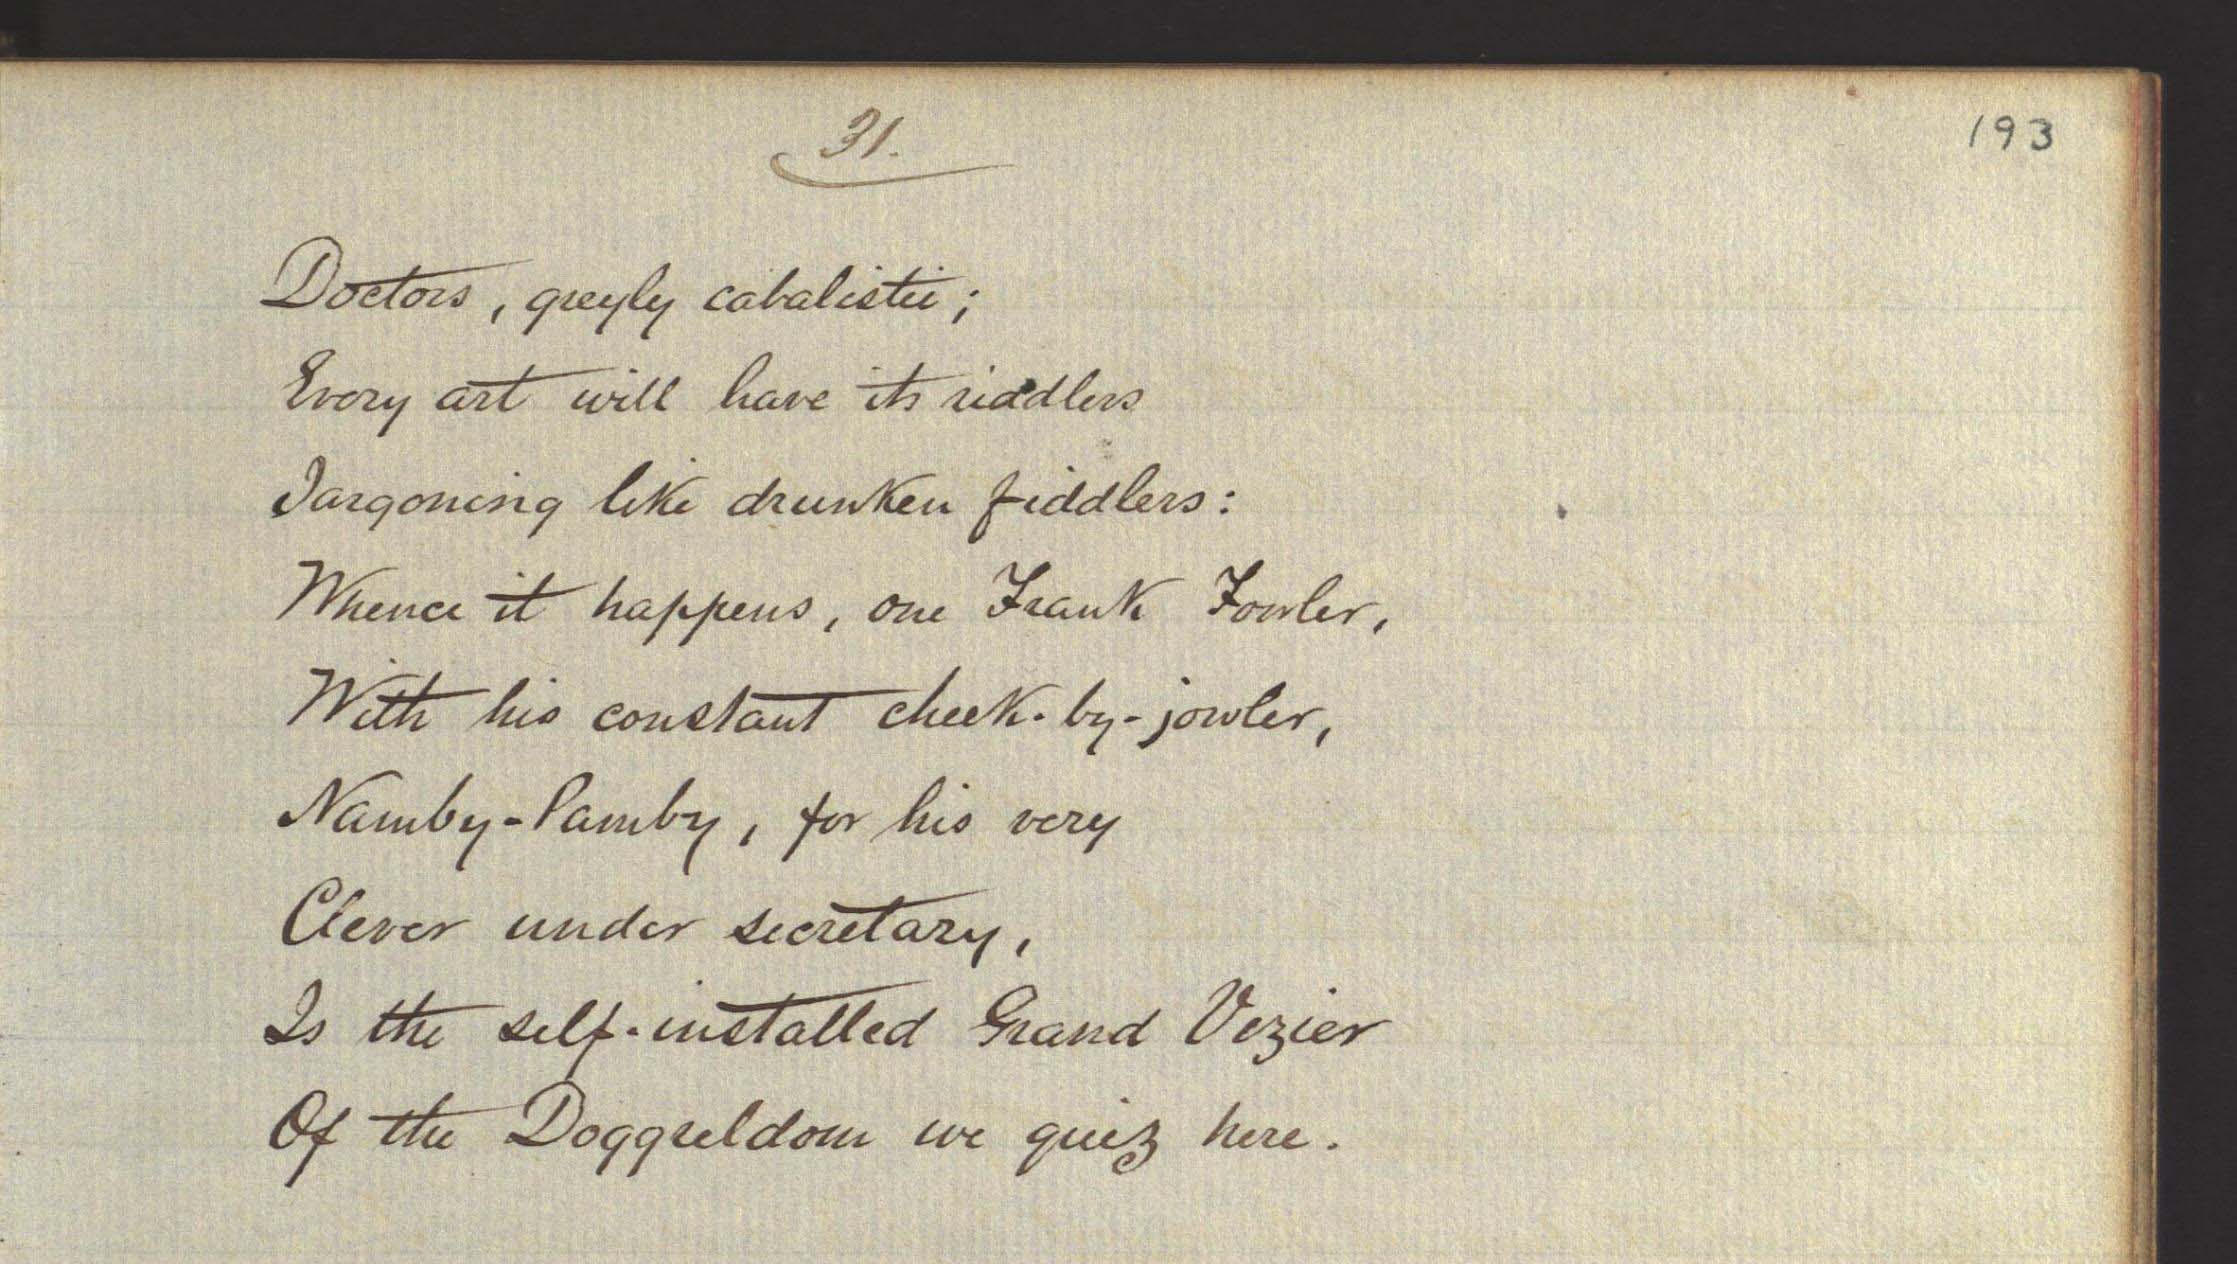 31.
193
Doctors, greyly cabalistic;
Every art will have its riddlers
Jargoning like drunken fiddlers:
Whence it happens, one Frank Fowler,
With his constant cheek-by-jowler,
Namby-Pamby, for his very
Clever under secretary,
Is the self-installed Grand Vizier
Of the Doggreldom we quiz here.